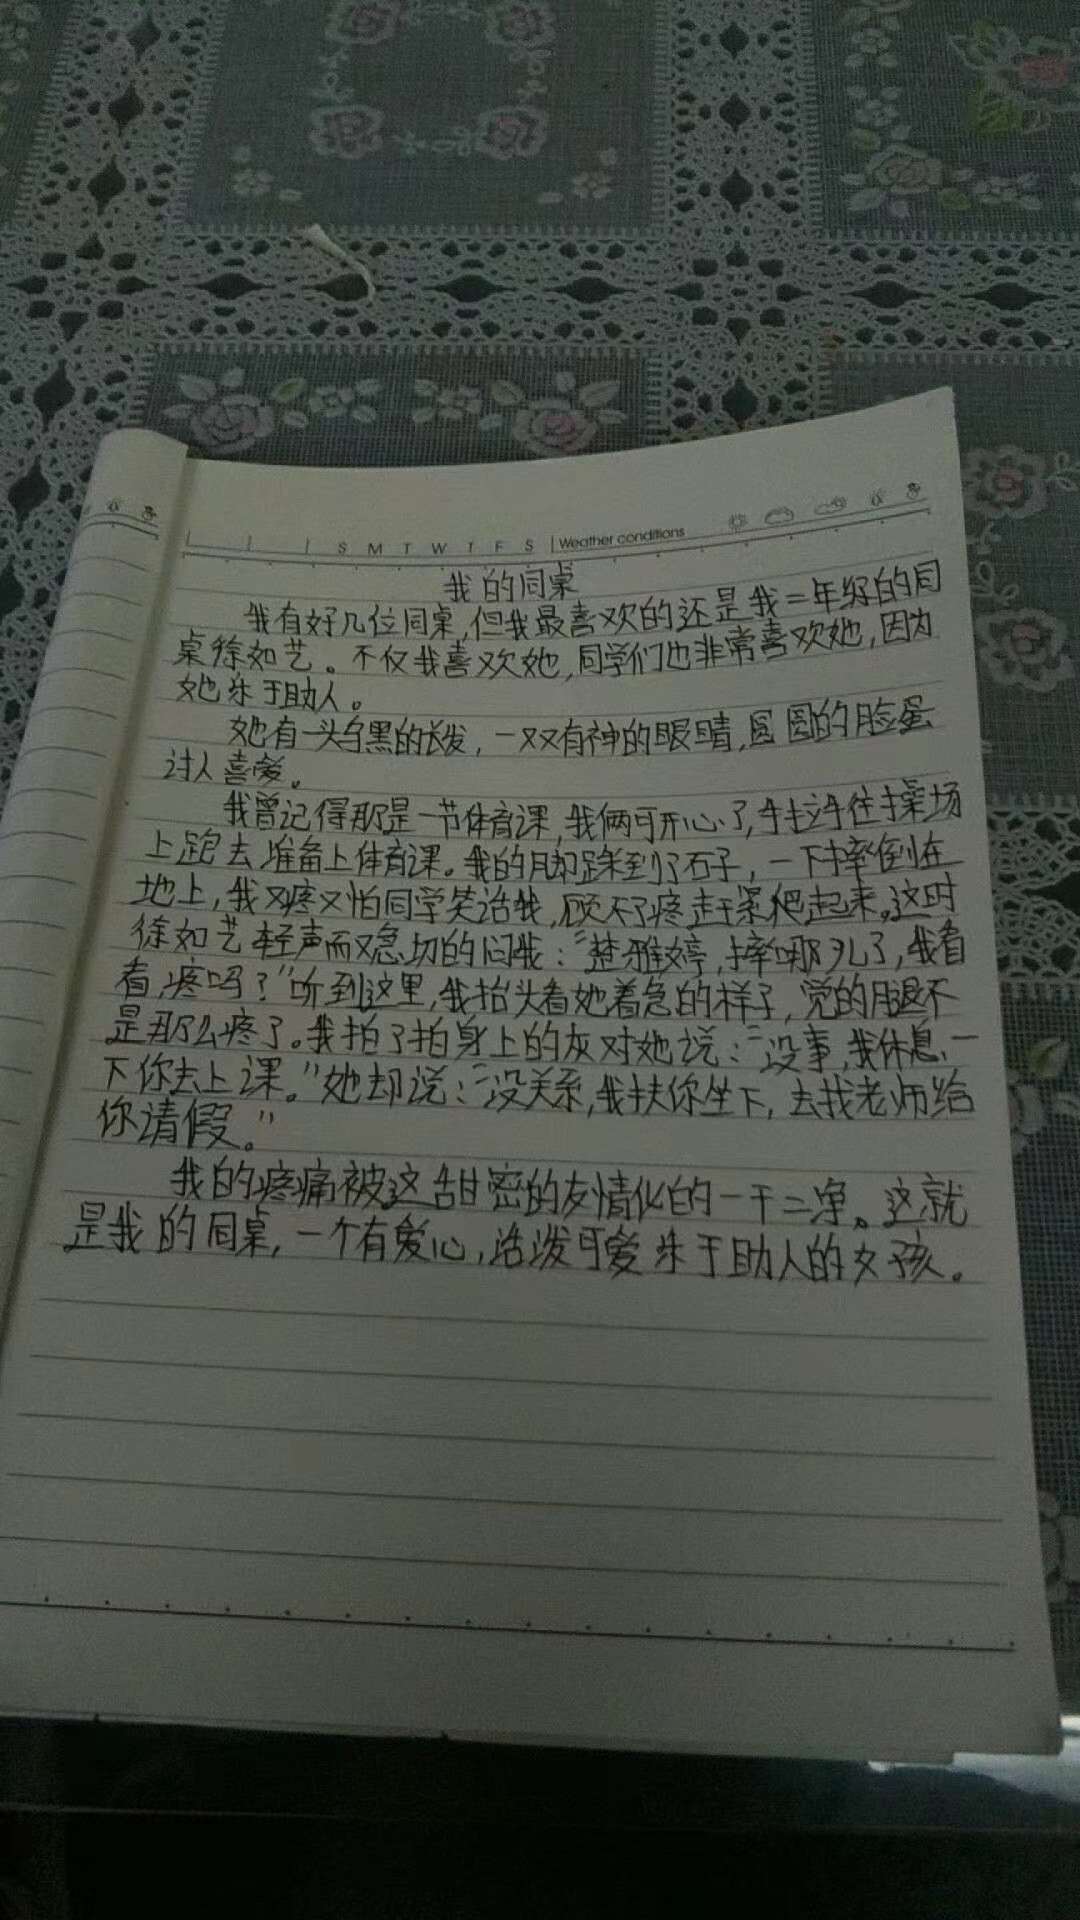 S M T W T F S Weather conditions
我的同桌
我有好几位同桌,但我最喜欢的还是我二年级的同
桌徐如艺。不仅我喜欢她,同学们也非常喜欢她,因为
她乐于助人。
她有一头乌黑的长发,一双有神的眼睛,圆圆的脸蛋
讨人喜爱。
我曾记得那是一节体育课,我俩可开心了,手拉手往操场
上跑去准备上体育课。我的脚踩到了石子,一下摔倒在
地上,我又疼又怕同学笑话我,顾不了疼赶紧爬起来。这时
徐如艺轻声而又急切的问我:“楚雅婷,摔哪儿了,我看
看,疼吗?”听到这里,我抬头看她着急的样子,觉的腿不
是那么疼了。我拍了拍身上的灰对她说:“没事,我休息一
下你去上课。”她却说:“没关系,我扶你坐下,去找老师给
你请假。”
我的疼痛被这甜密的友情化的一干二净。这就
是我的同桌,一个有爱心,活泼可爱乐于助人的女孩。